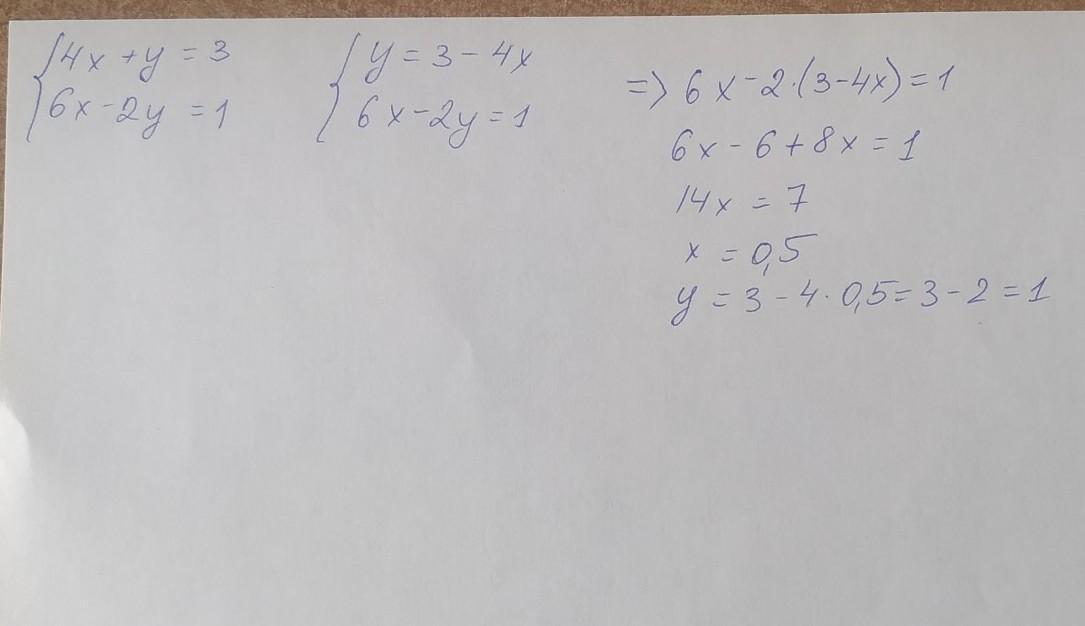 4x + y = 3
6x - 2y = 1
y = 3 - 4x
6x - 2y = 1
=> 6x - 2·(3 - 4x) = 1
6x - 6 + 8x = 1
14x = 7
x = 0,5
y = 3 - 4·0,5 = 3 - 2 = 1